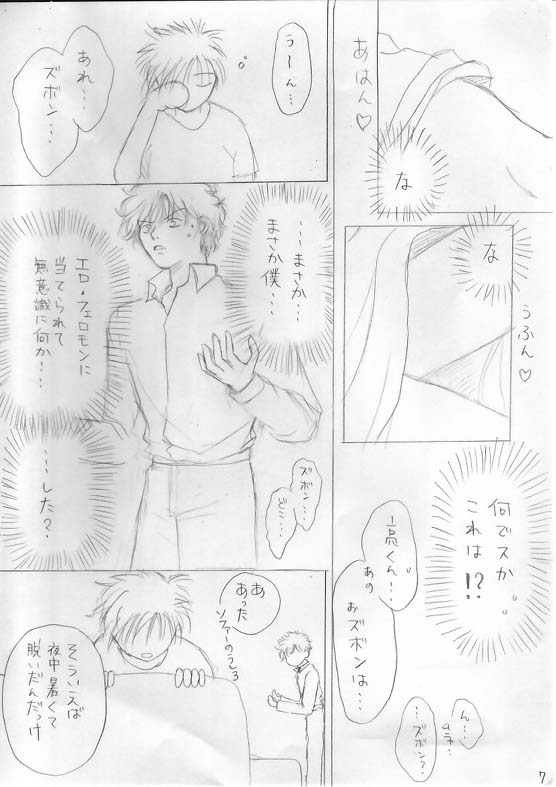 あはん♡
な
な
うふん♡
何でスか
これは!?
亮くん…
あの
おズボンは…
ん…
ムラ…
…ズボン?
う〜ん…
あれ…
ズボン…
…まさか…
まさか僕…
エロ・フェロモンに
当てられて
無意識に何か…
…した?
ズボン…
どこ…
あ
あった
ソファーのうしろ
そういえば
夜中暑くて
脱いだんだっけ
7